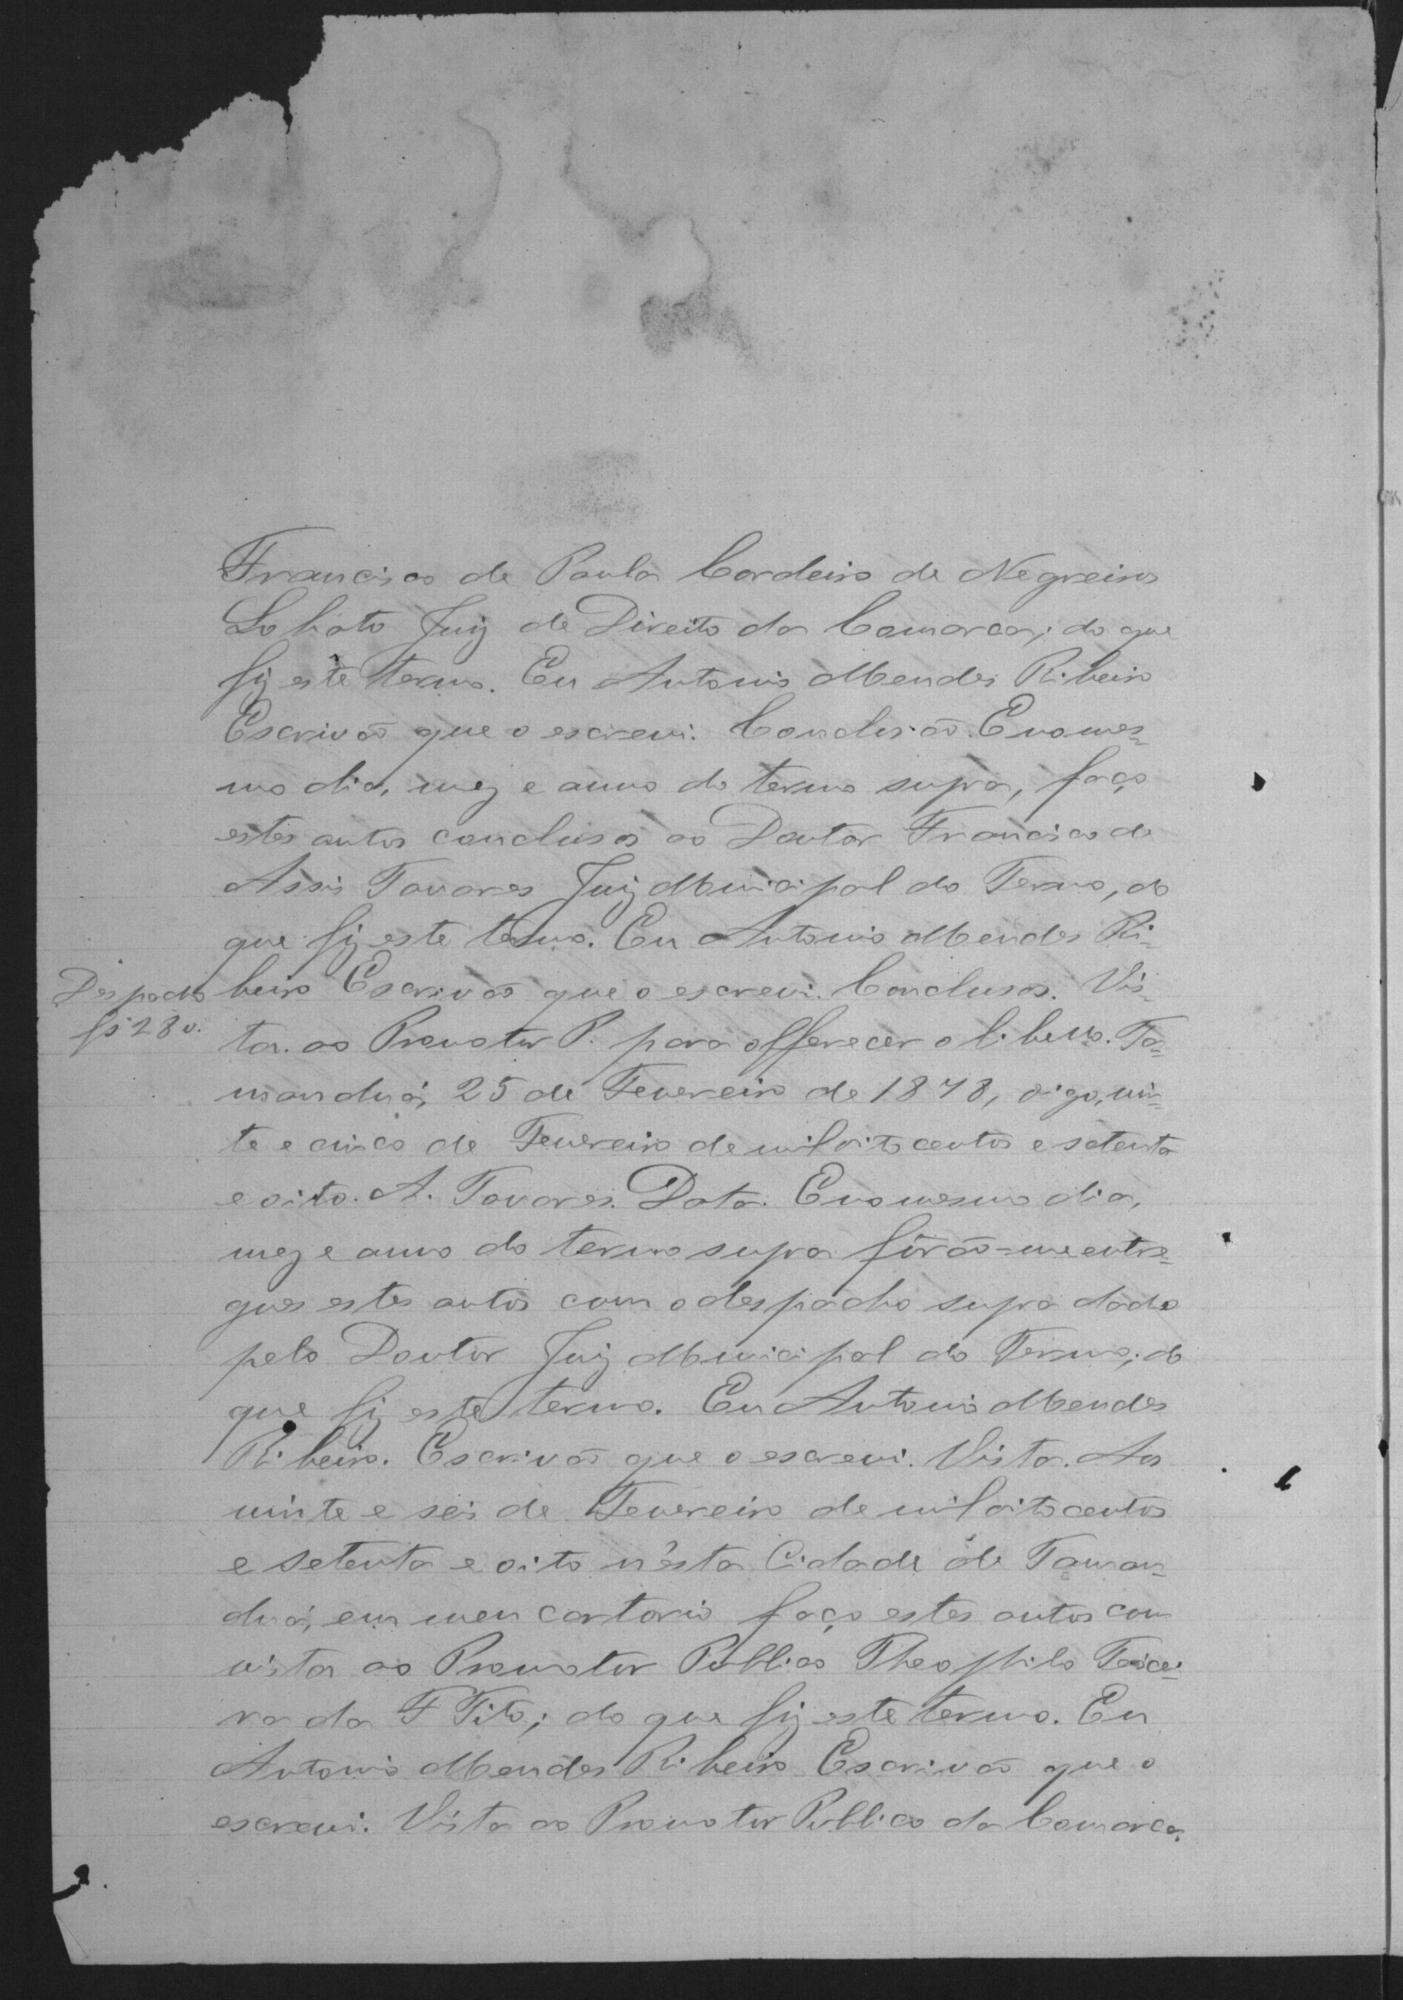 Francisco de Paula Cordeiro de Negreiros
Lobato Juiz de Direito da Comarca; do que
fiz este termo. Eu Antonio Mendes Ribeiro
Escrivaõ que o escrevi. Conclusaõ. E no mes-
mo dia, mez e anno do termo supra, faço
estes autos conclusos ao Doutor Francisco de
Assis Tavares Juiz Municipal do Termo, do
que fiz este termo. Eu Antonio Mendes Ri-
Despacho
fs 28 v.
beiro Escrivaõ que o escrevi. Conclusos. Vis-
ta ao Promotor P. para offerecer o libello. Ta-
manduá, 25 de Fevereiro de 1878, digo, vin-
te e cinco de Fevereiro de mil oito centos e setenta
e oito. A. Tavares. Data. E no mesmo dia,
mez e anno do termo supra fôraõ-me entre-
gues estes autos com o despacho supra dado
pelo Doutor Juiz Municipal do Termo; do
que fiz este termo. Eu Antonio Mendes
Ribeiro. Escrivaõ que o escrevi. Vista. Aos
vinte e seis de Fevereiro de mil oito centos
e setenta e oito n'esta Cidade de Taman-
duá, em meu cartorio faço estes autos com
vista ao Promotor Publico Theophilo Teixei-
ra da F Tito; do que fiz este termo. Eu
Antonio Mendes Ribeiro Escrivaõ que o
escrevi. Vista ao Promotor Publico da Comarca.